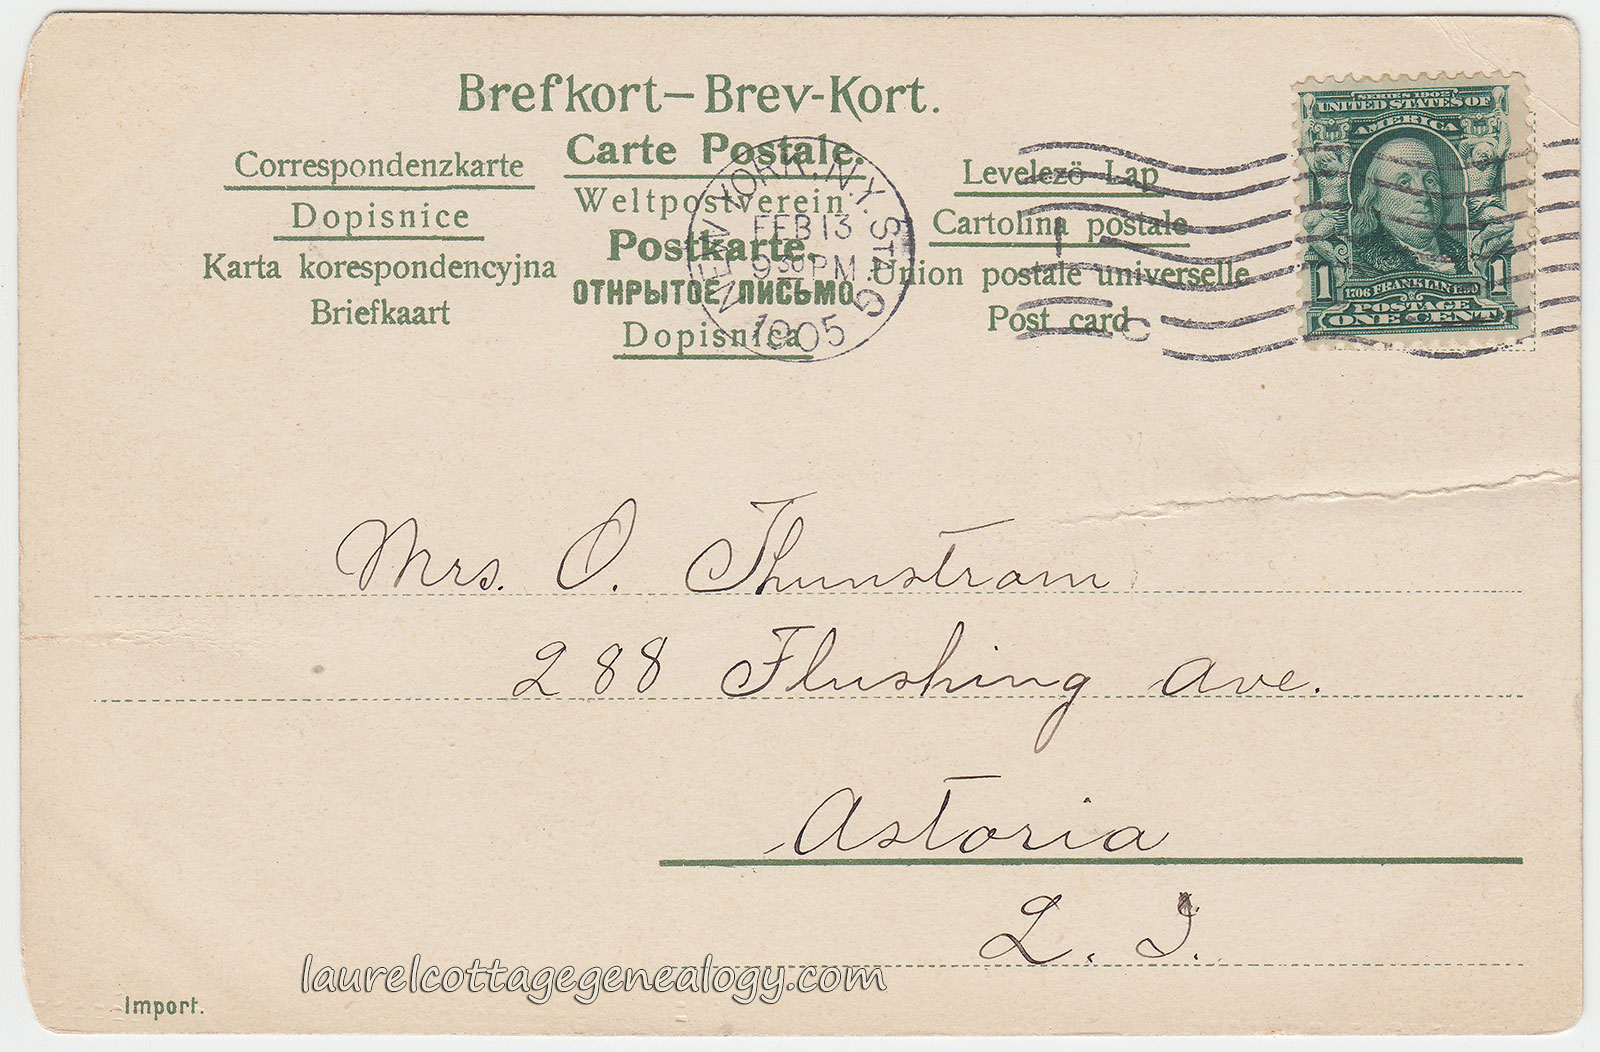 Brefkort—Brev-Kort.
Carte Postale.
Weltpostverein
Postkarte.
ОТНРЫТОЕ ПИСЬМО.
Dopisnica
Correspondenzkarte
Dopisnice
Karta korespondencyjna
Briefkaart
Levelezö Lap
Cartolina postale
Union postale universelle
Post card
NEW YORK, N.Y. STA. G
FEB 13
9 30 PM
1905
1
C
SERIES 1902
UNITED STATES OF
AMERICA
1 1
1706 FRANKLIN 1790
POSTAGE
ONE CENT
Mrs. O. Thunstrom
288 Flushing Ave.
Astoria
L. I.
laurelcottagegenealogy.com
Import.